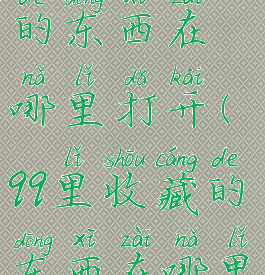 de dōng xī zài
的东西在
nǎ lǐ dǎ kāi
哪里打开(
lǐ shōu cáng de
99里收藏的
dōng xī zài nǎ lǐ
东西在哪里